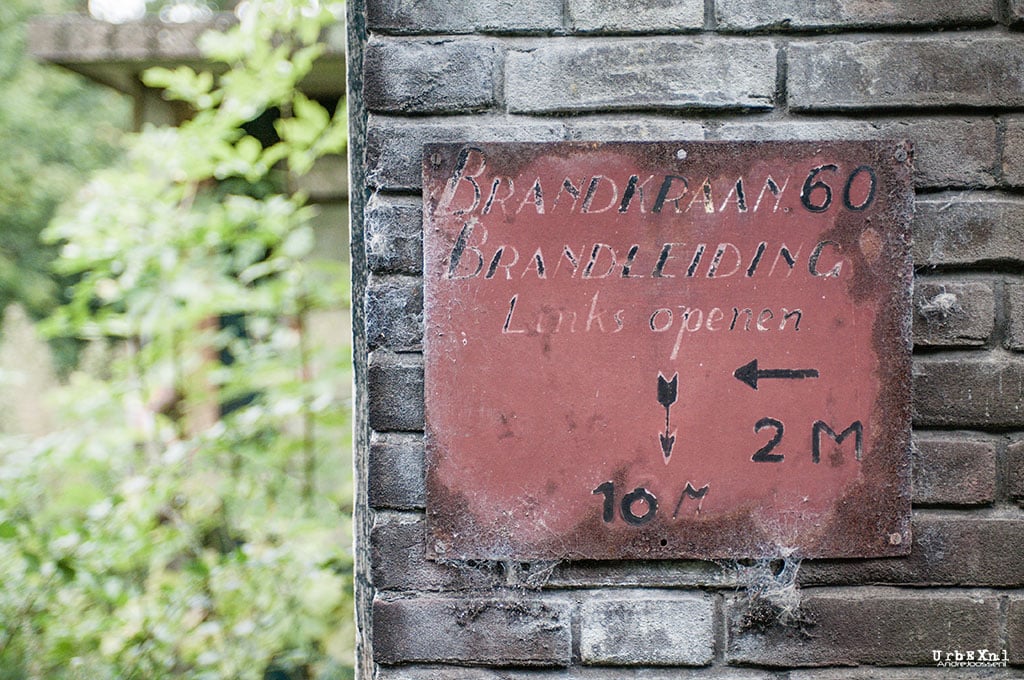 BRANDKRAAN. 60
BRANDLEIDING
Links openen
2 M
10 M
UrbEXnl
AndreJoosse.nl